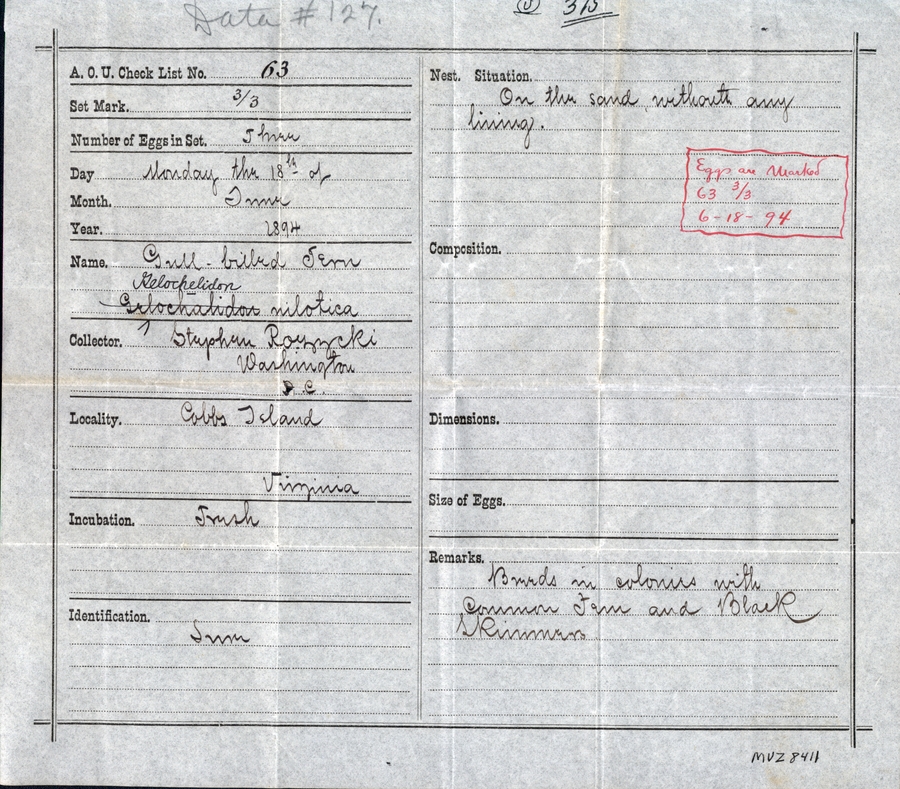 Data # 127.
(U) 3/3
A. O. U. Check List No. 63
Set Mark. 3/3
Number of Eggs in Set. Three
Day Monday the 18th of
Month. June
Year. 1894
Name. Gull-billed Tern
Gelochelidon
Gelochalidon nilotica
Collector. Stephen Rozycki
Washington
D.C.
Locality. Cobbs Island
Virginia
Incubation. Fresh
Identification.
Sure
Nest. Situation.
On the sand without any
lining.
Eggs are Marked
63 3/3
6-18-94
Composition.
Dimensions.
Size of Eggs.
Remarks.
Breeds in colonies with
Common Tern and Black
Skimmers
MVZ 8411